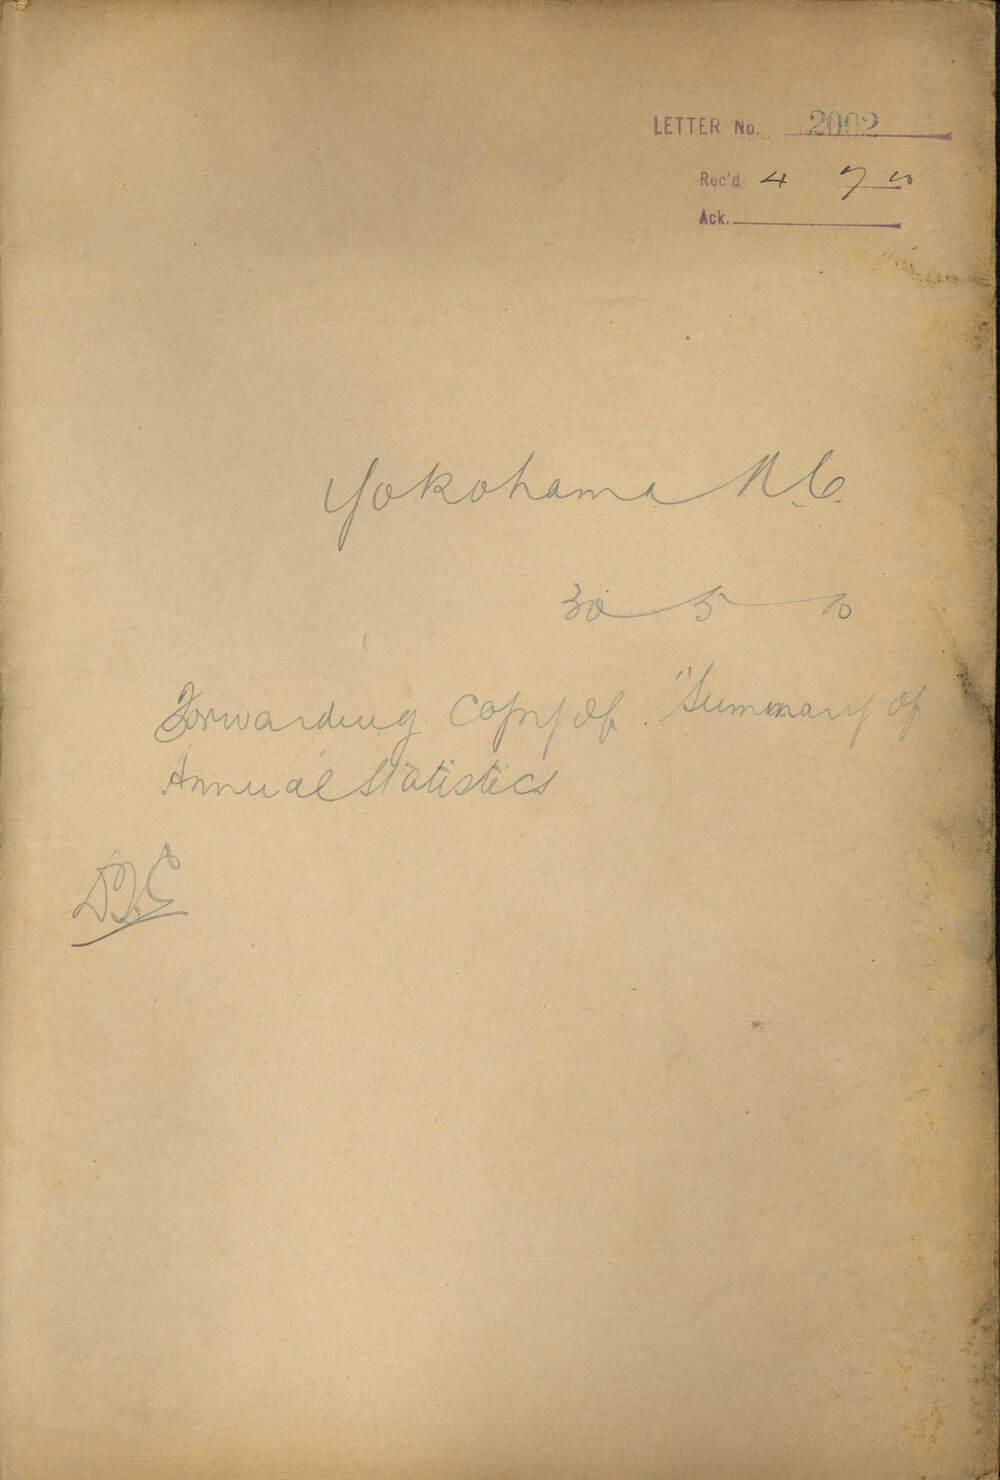 LETTER No. 2002
Rec'd 4 7 10
Ack.
Yokohama N.C.
30 5 10
Forwarding copy of "Summary of
Annual Statistics